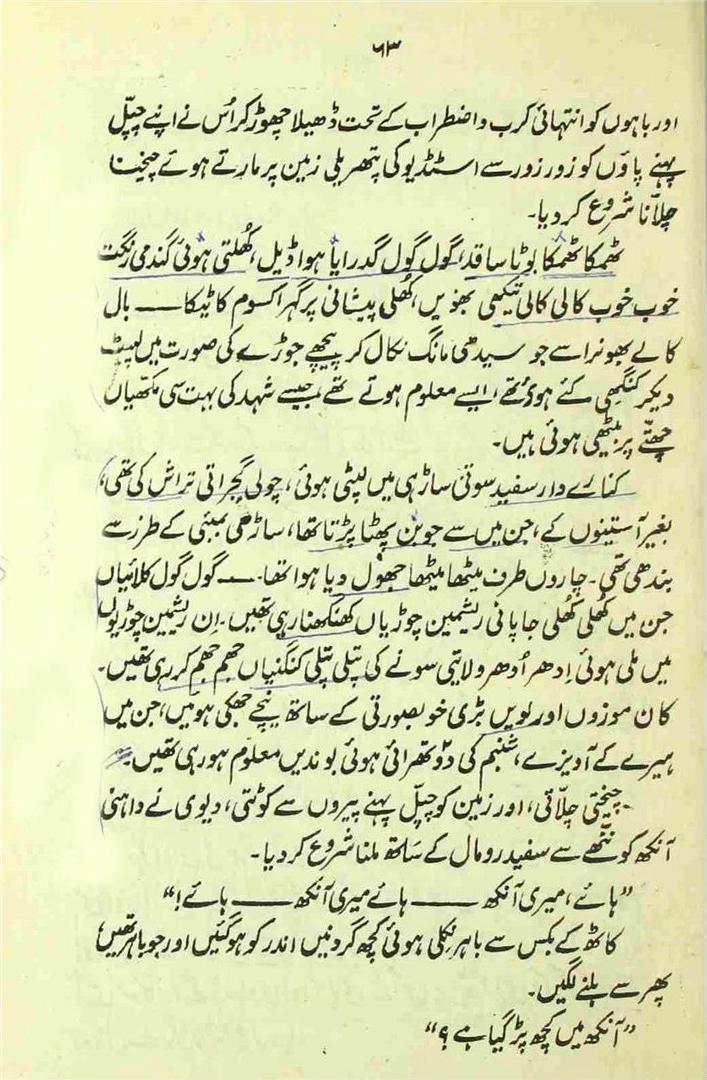 ۶۳
اور باہوں کو انتہائی کرب و اضطراب کے تحت ڈھیلا چھوڑ کر اُس نے اپنے چپّل
پہنے پاؤں کو زور زور سے اسٹنڈیو کی پتھریلی زمین پر مارتے ہوئے چیخنا
چلاّنا شروع کر دیا۔
ٹھمکا ٹھمکا بوٹا سا قد، گول گول گدرایا ہوا ڈیل، کھُلتی ہوئی گندمی رنگت
خوب خوب کالی کالی تیکھی بھویں، کھُلی پیشانی پر گہرا کسوم کا ٹیکا ــــ بال
کالے بھونرا سے جو سیدھی مانگ نکال کر پیچھے جوڑے کی صورت میں لپیٹ
دیکر کنگھی کئے ہوئے تھے، ایسے معلوم ہوتے تھے، جیسے شہد کی بہت سی مکھّیاں
چھتّے پر بیٹھی ہوئی ہیں۔
کنارے دار سفید سوتی ساڑھی میں لپٹی ہوئی، چولی گجراتی تراش کی تھی،
بغیر آستینوں کے، جن میں سے جوبن پھٹا پڑتا تھا، ساڑھی بمبئی کے طرز سے
بندھی تھی۔ چاروں طرف میٹھا میٹھا جھول دیا ہوا تھا۔ ــــ گول گول کلائیاں
جن میں کھُلی کھُلی جاپانی ریشمین چوڑیاں کھنکھنا رہی تھیں۔ اِن ریشمین چوڑیوں
میں ملی ہوئی اِدھر اُدھر ولایتی سونے کی پتلی پتلی کنگنیاں جھم جھم کر رہی تھیں۔
کان موزوں اور لویں بڑی خوبصورتی کے ساتھ نیچے جھکی ہوئیں، جن میں
ہیرے کے آویزے، شبنم کی دو تھرائی ہوئی بوندیں معلوم ہو رہی تھیں۔
چیختی چلاّتی، اور زمین کو چپل پہنے پیروں سے کوٹتی، دیوی نے داہنی
آنکھ کو ننّھے سے سفید رومال کے ساتھ ملنا شروع کر دیا۔
”ہائے، میری آنکھ ــــــ ہائے میری آنکھ ــــــ ہائے!“
کاٹھ کے بکس سے باہر نکلی ہوئی کچھ گردنیں اندر کو ہو گئیں اور جو باہر تھیں،
پھر سے ہلنے لگیں۔
”آنکھ میں کچھ پڑ گیا ہے؟“